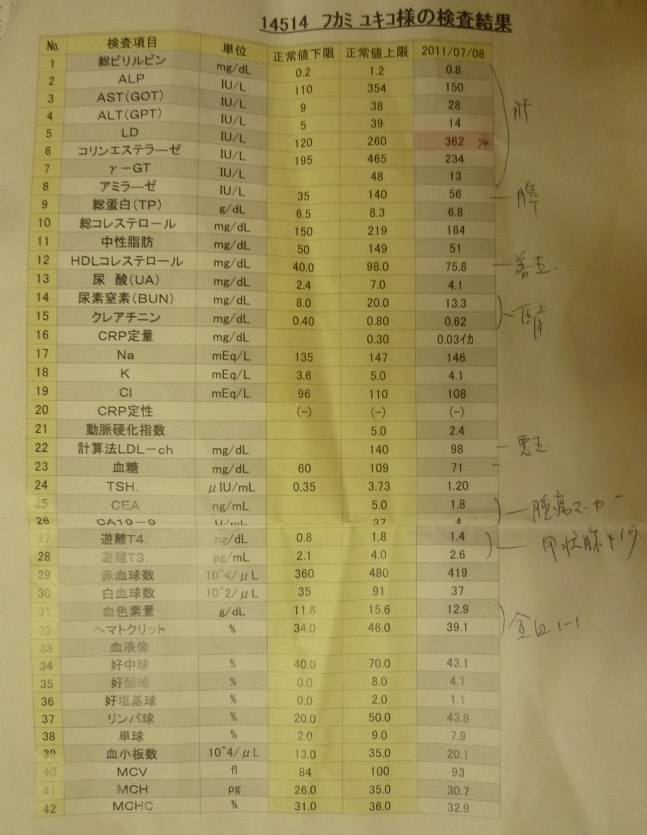 14514 フカミ ユキコ様の検査結果
No. 検査項目 単位 正常値下限 正常値上限 2011/07/08
1 総ビリルビン mg/dL 0.2 1.2 0.8
2 ALP IU/L 110 354 150
3 AST(GOT) IU/L 9 38 28
4 ALT(GPT) IU/L 5 39 14
5 LD IU/L 120 260 362
6 コリンエステラーゼ IU/L 195 465 234
7 γ-GT IU/L 48 13
8 アミラーゼ IU/L 35 140 56
9 総蛋白(TP) g/dL 6.5 8.3 6.8
10 総コレステロール mg/dL 150 219 184
11 中性脂肪 mg/dL 50 149 51
12 HDLコレステロール mg/dL 40.0 98.0 75.8
13 尿 酸(UA) mg/dL 2.4 7.0 4.1
14 尿素窒素(BUN) mg/dL 8.0 20.0 13.3
15 クレアチニン mg/dL 0.40 0.80 0.62
16 CRP定量 mg/dL 0.30 0.03イカ
17 Na mEq/L 135 147 146
18 K mEq/L 3.6 5.0 4.1
19 Cl mEq/L 96 110 108
20 CRP定性 (-) (-) (-)
21 動脈硬化指数 5.0 2.4
22 計算法LDL-ch mg/dL 140 98
23 血糖 mg/dL 60 109 71
24 TSH. μIU/mL 0.35 3.73 1.20
25 CEA ng/mL 5.0 1.8
26 CA19-9 U/mL 37 4
27 遊離T4. ng/dL 0.8 1.8 1.4
28 遊離T3. pg/mL 2.1 4.0 2.6
29 赤血球数 10^4/μL 360 480 419
30 白血球数 10^2/μL 35 91 37
31 血色素量 g/dL 11.6 15.6 12.9
32 ヘマトクリット % 34.0 46.0 39.1
33 血液像
34 好中球 % 40.0 70.0 43.1
35 好酸球 % 0.0 8.0 4.1
36 好塩基球 % 0.0 2.0 1.1
37 リンパ球 % 20.0 50.0 43.8
38 単球 % 2.0 9.0 7.9
39 血小板数 10^4/μL 13.0 35.0 20.1
40 MCV fl 84 100 93
41 MCH pg 26.0 35.0 30.7
42 MCHC % 31.0 36.0 32.9
肝
腫瘍マーカー